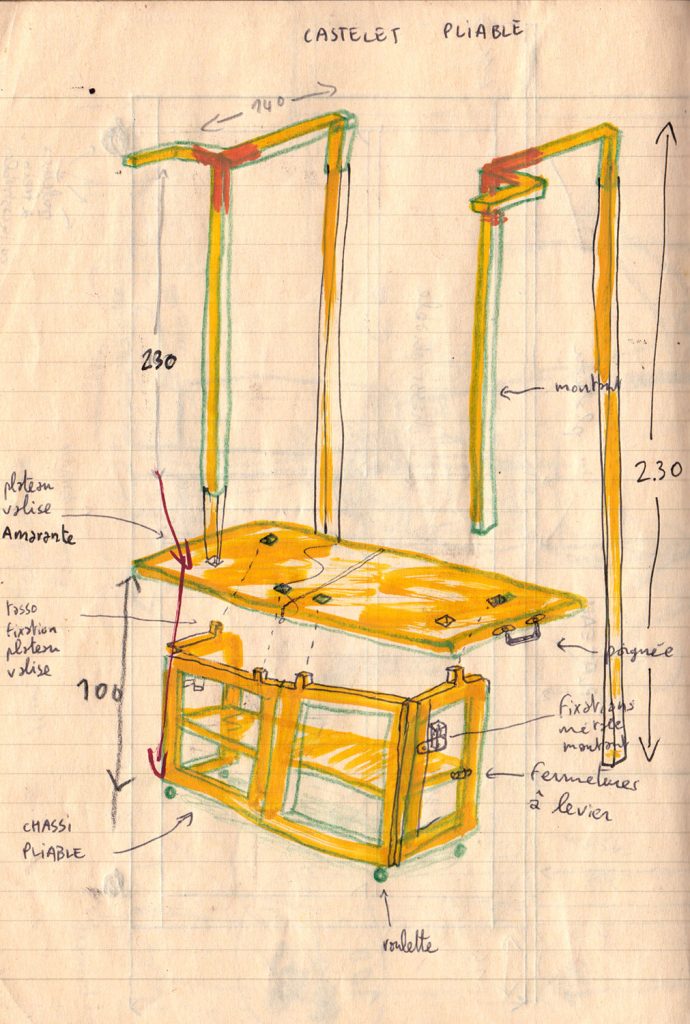 CASTELET PLIABLE
140
230
montant
2.30
plateau
valise
Amarante
tasso
fixation
plateau
valise
poignée
100
fixations
métale
montant
fermetures
à levier
CHASSI
PLIABLE
roulette